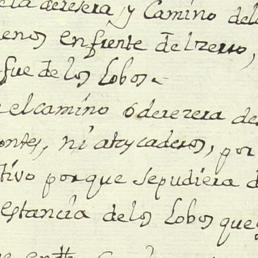 la derezera, y Camino del
enos enfrente del zerro,
fue de los Lobos.
el camino ó derezera de
ontes, ni atrycaderos, por
tivo porque se pudiera
estancia de los Lobos que